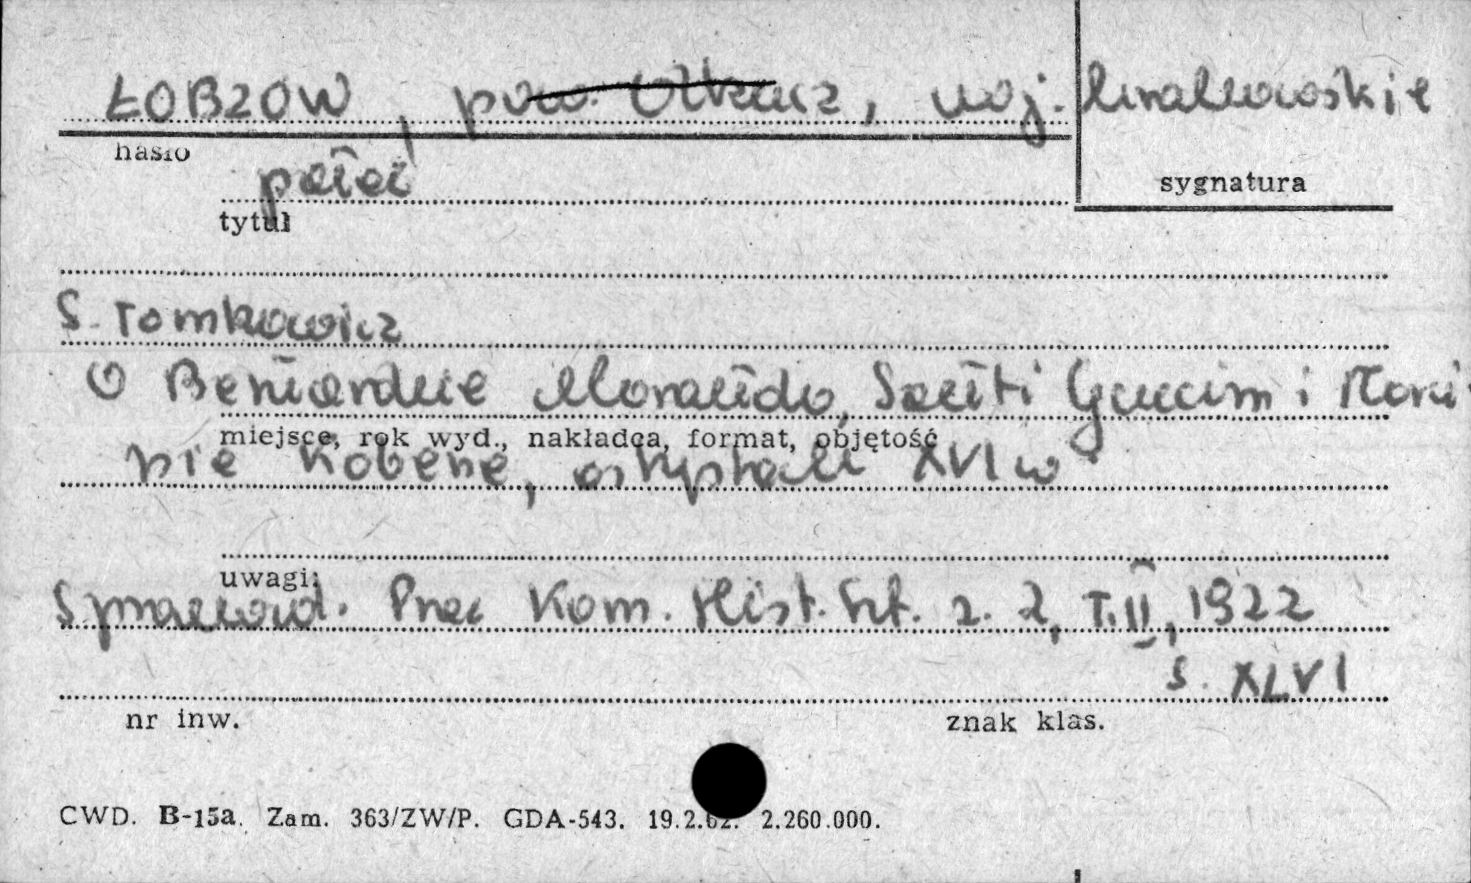 ŁOBZÓW, pow. Olkusz, woj. krakowskie
hasło
pałac
sygnatura
tytuł
S. Tomkowicz
O Bernardzie Morando, Santi Guccim i Kaci
miejsce, rok wyd., nakładca, format, objętość
prze Kobene, artystach XVI w
uwagi:
Sprawozd. Prac Kom. Hist. Szt. z. 2, T. II, 1922
s. XLVI
nr inw.
znak klas.
CWD. B-15a. Zam. 363/ZW/P. GDA-543. 19.2.62. 2.260.000.